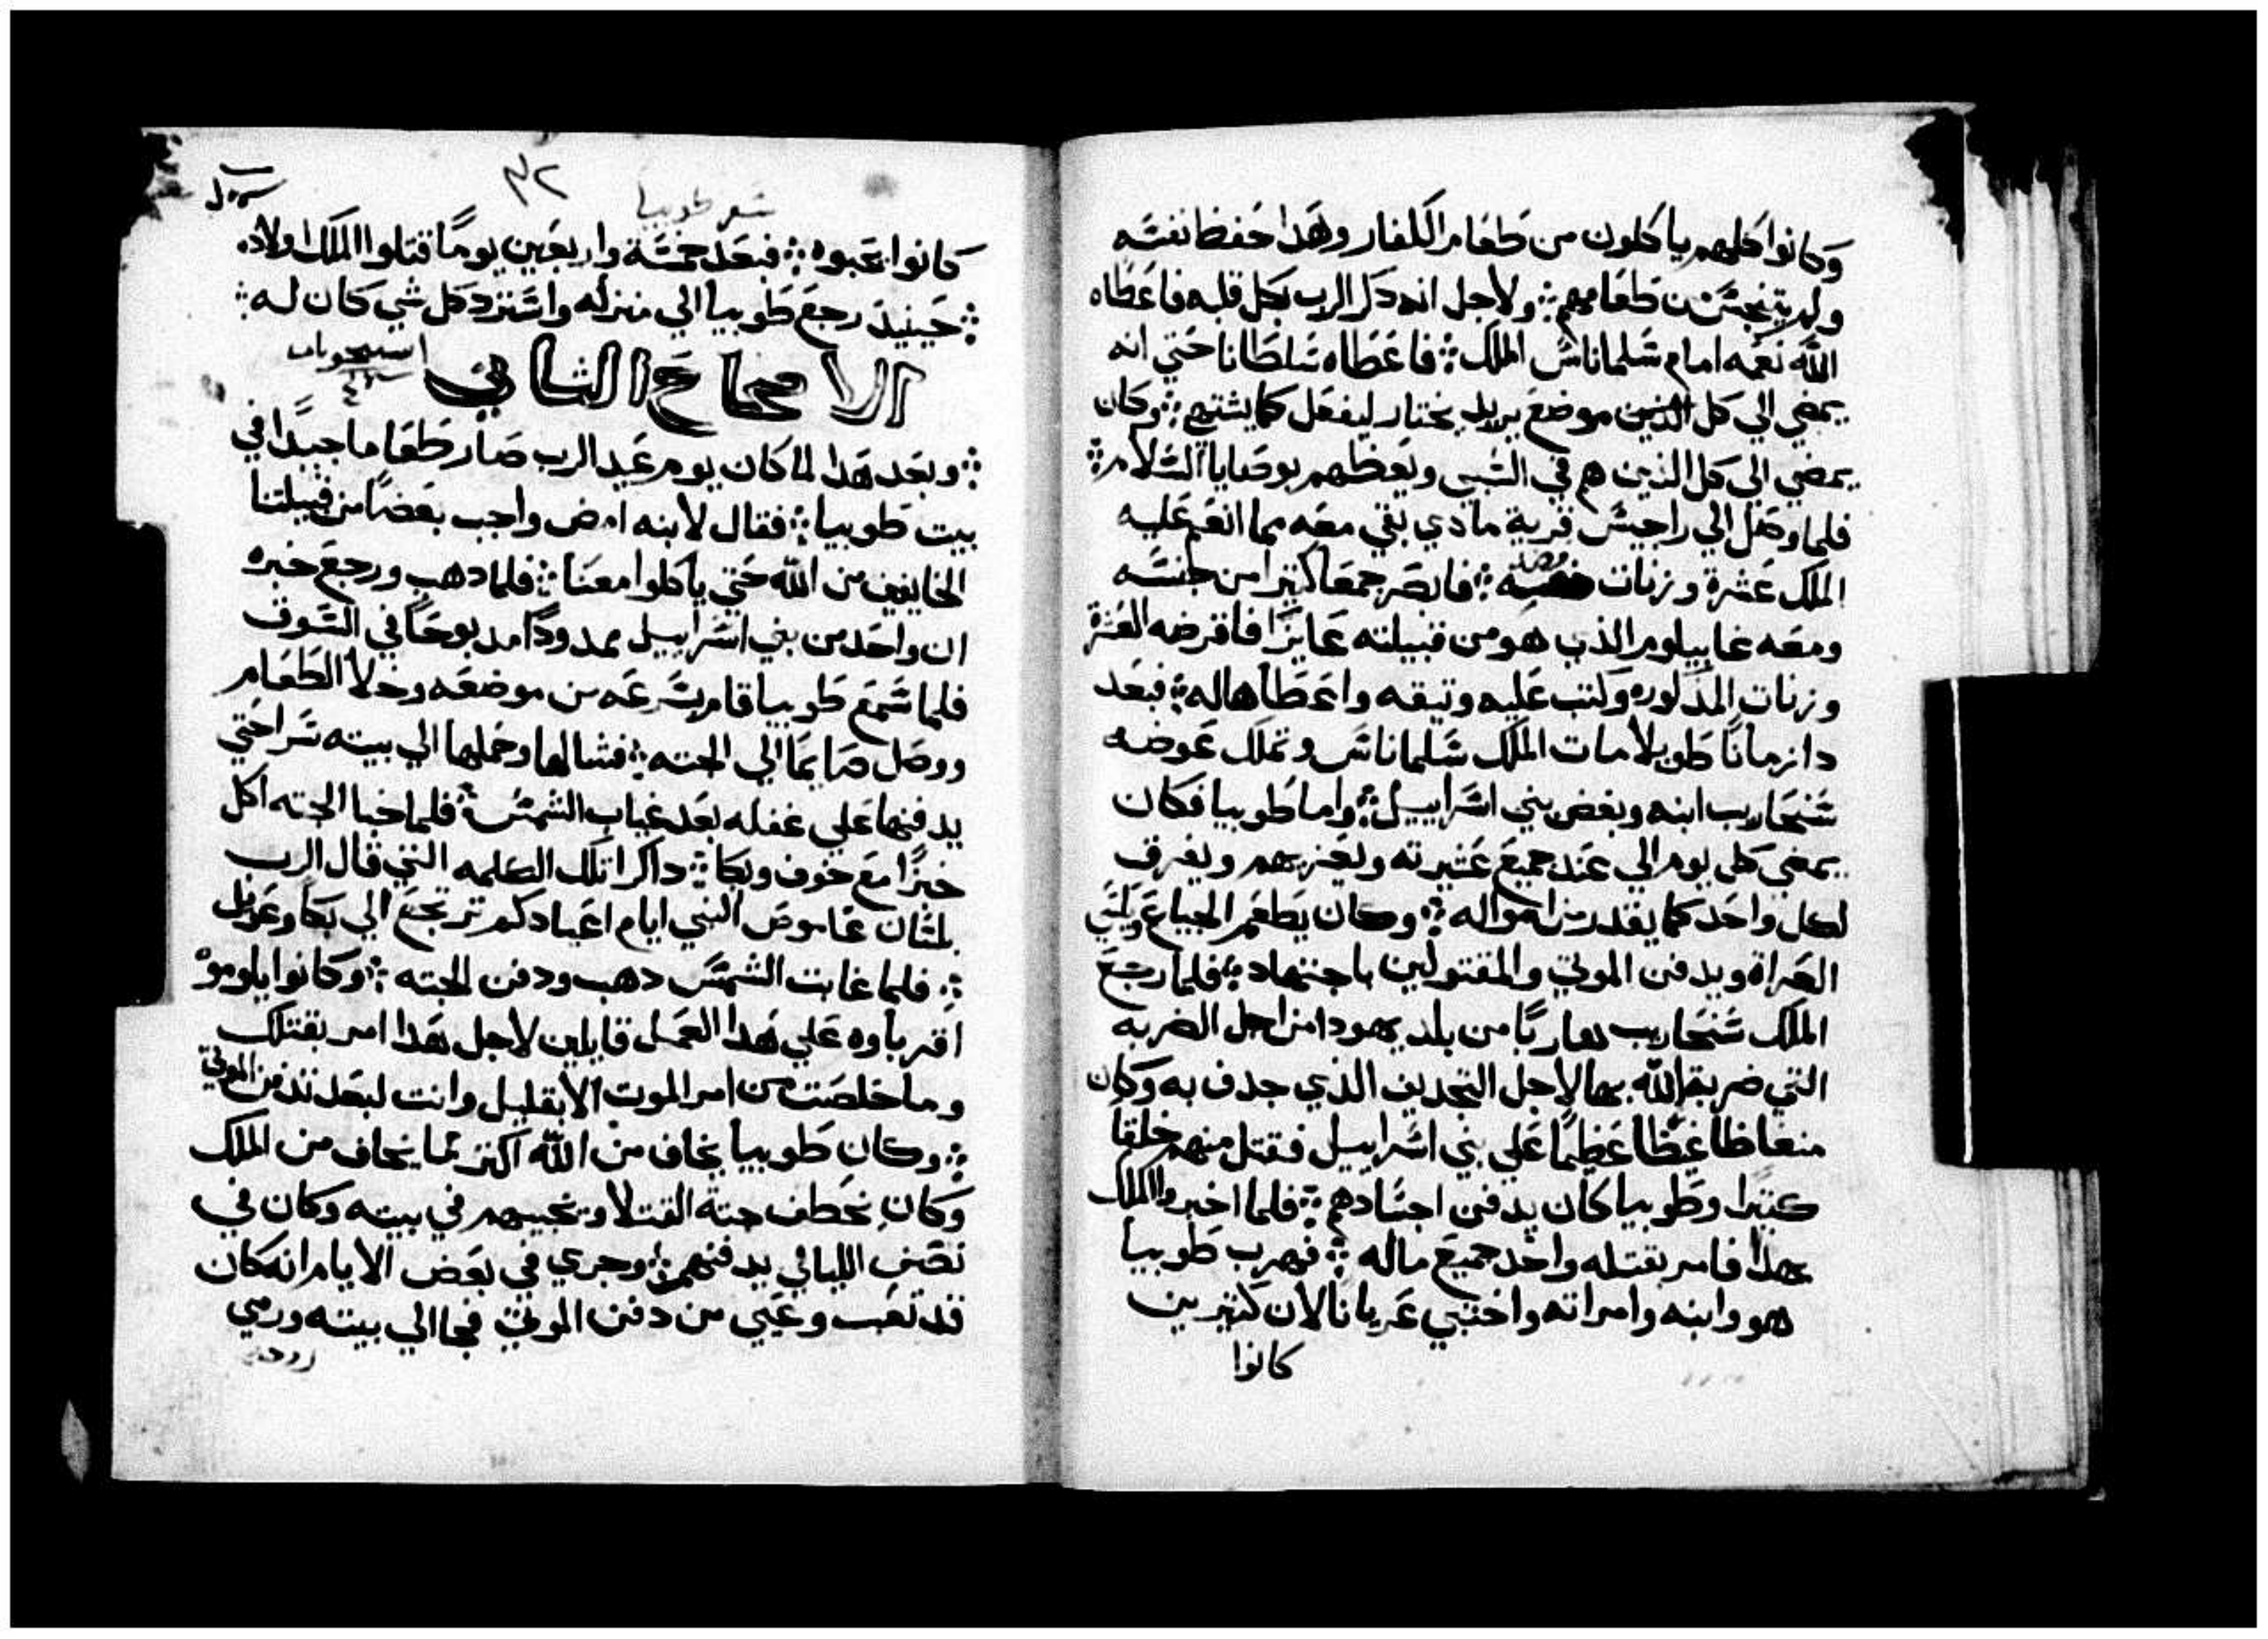 وكانوا كلهم ياكلون من طعام الكفار وهدا حفظ نفسه
ولم يتنجس من طعامهم ۞ ولاجل انه دكر الرب بكل قلبه فاعطاه
الله نعمه امام شلماناش الملك ۞ فاعطاه سلطانا حتي انه
يمضي الي كل موضع يريد يختار ليفعل كما يشتهي ۞ وكان
يمضي الي كل الذين هم في السبي ويعظهم بوصايا السلامر ۞
فلما وصل الي راجيس قرية مادي بقي معه مما انعم عليه
الملك عشرة وزنات فضه ۞ فابصر جمعا كتيرا من جنسه
ومعه غابيلوم الذي هو من قبيلته عايزا فاقرضه العشرة
وزنات المدكوره وكتب عليه وتيقه واعطاها له ۞ فبعد
دا زمانا طويلا مات الملك شلماناس وتملك عوضه
سنحاريب ابنه وبغض بني اسراييل ۞ واما طوبيا فكان
يمضي كل يوم الي عند جميع عشيرته ويعزيهم ويفرق
لكل واحد كما يقدر من امواله ۞ وكان يطعم الجياع ويكسي
العراة ويدفن الموتي والمقتولين باجتهاد ۞ فلما رجع
الملك سنحاريب هاربا من بلد يهودا من اجل الضربه
التي ضربه الله بها لاجل التجديف الذي جدف به وكان
منغاظا غيظا عظيما علي بني اسراييل فقتل منهم خلقا
كتيرا وطوبيا كان يدفن اجسادهم ۞ فلما اخبروا الملك
بهدا فامر بقتله واخد جميع ماله ۞ فهرب طوبيا
هو وابنه وامراته واختبي عريانا لان كتيرين
كانوا
٣٢
سفر طوبيا
كانوا يحبوه ۞ فبعد خمسة واربعين يوما قتلوا الملك اولاده
۞ حينيد رجع طوبيا الي منزله واسترد كل شي كان له ۞
الاصحاح الثاني
۞ وبعد هدا لما كان يوم عيد الرب صار طعاما جيدا في
بيت طوبيا ۞ فقال لابنه امض واجب بعضا من قبيلتنا
الخايفين من الله حتي ياكلوا معنا ۞ فلما دهب ورجع خبره
ان واحد من بني اسراييل ممدودا مدبوحا في السوق
فلما سمع طوبيا قام بسرعه من موضعه وخلا الطعام
ووصل صايما الي الجته ۞ فشالها وحملها الي بيته سرا حتي
يدفنها علي غفله بعد غياب الشمس ۞ فلما خبا الجته اكل
خبزا مع خوف وبكا ۞ داكرا تلك الكلمه التي قال الرب
بلسان عاموص النبي ايام اعيادكم ترتجع الي بكا وعويل
۞ فلما غابت الشمس دهب ودفن الجته ۞ وكانوا يلوموه
اقرباوه علي هدا العمل قايلين لاجل هدا امر بقتلك
وما خلصت من امر الموت الا بقليل وانت لبعد تدفن الموتي
۞ وكان طوبيا يخاف من الله اكتر مما يخاف من الملك
وكان يخطف جتة القتلا ويخبيهم في بيته وكان في
نصف الليالي يدفنهم ۞ وجري في بعض الايام انه كان
قد تعب وعيي من دفن الموتي فجا الي بيته ورمي
روحه